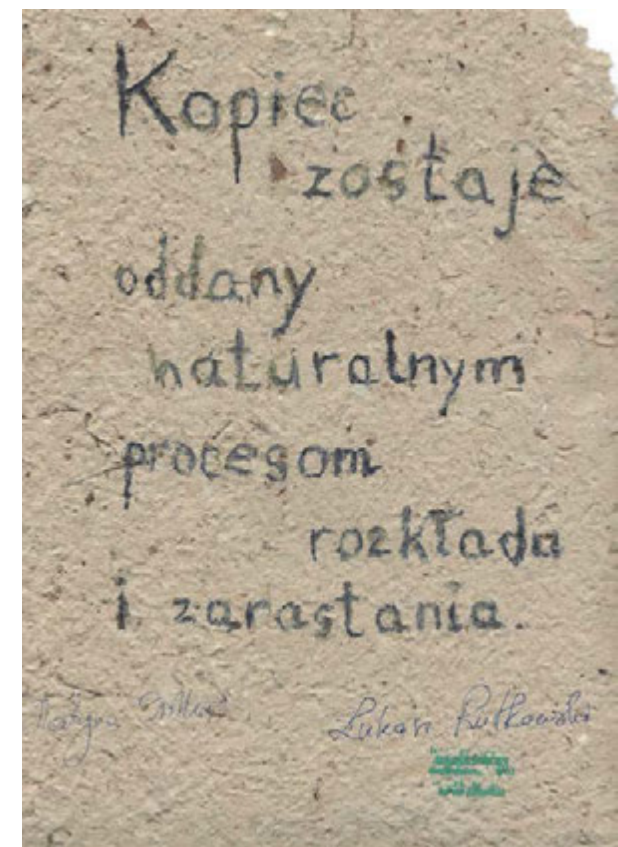 Kopiec
zostaje
oddany
naturalnym
procesom
rozkładu
i zarastania.
Łukasz Rutkowski